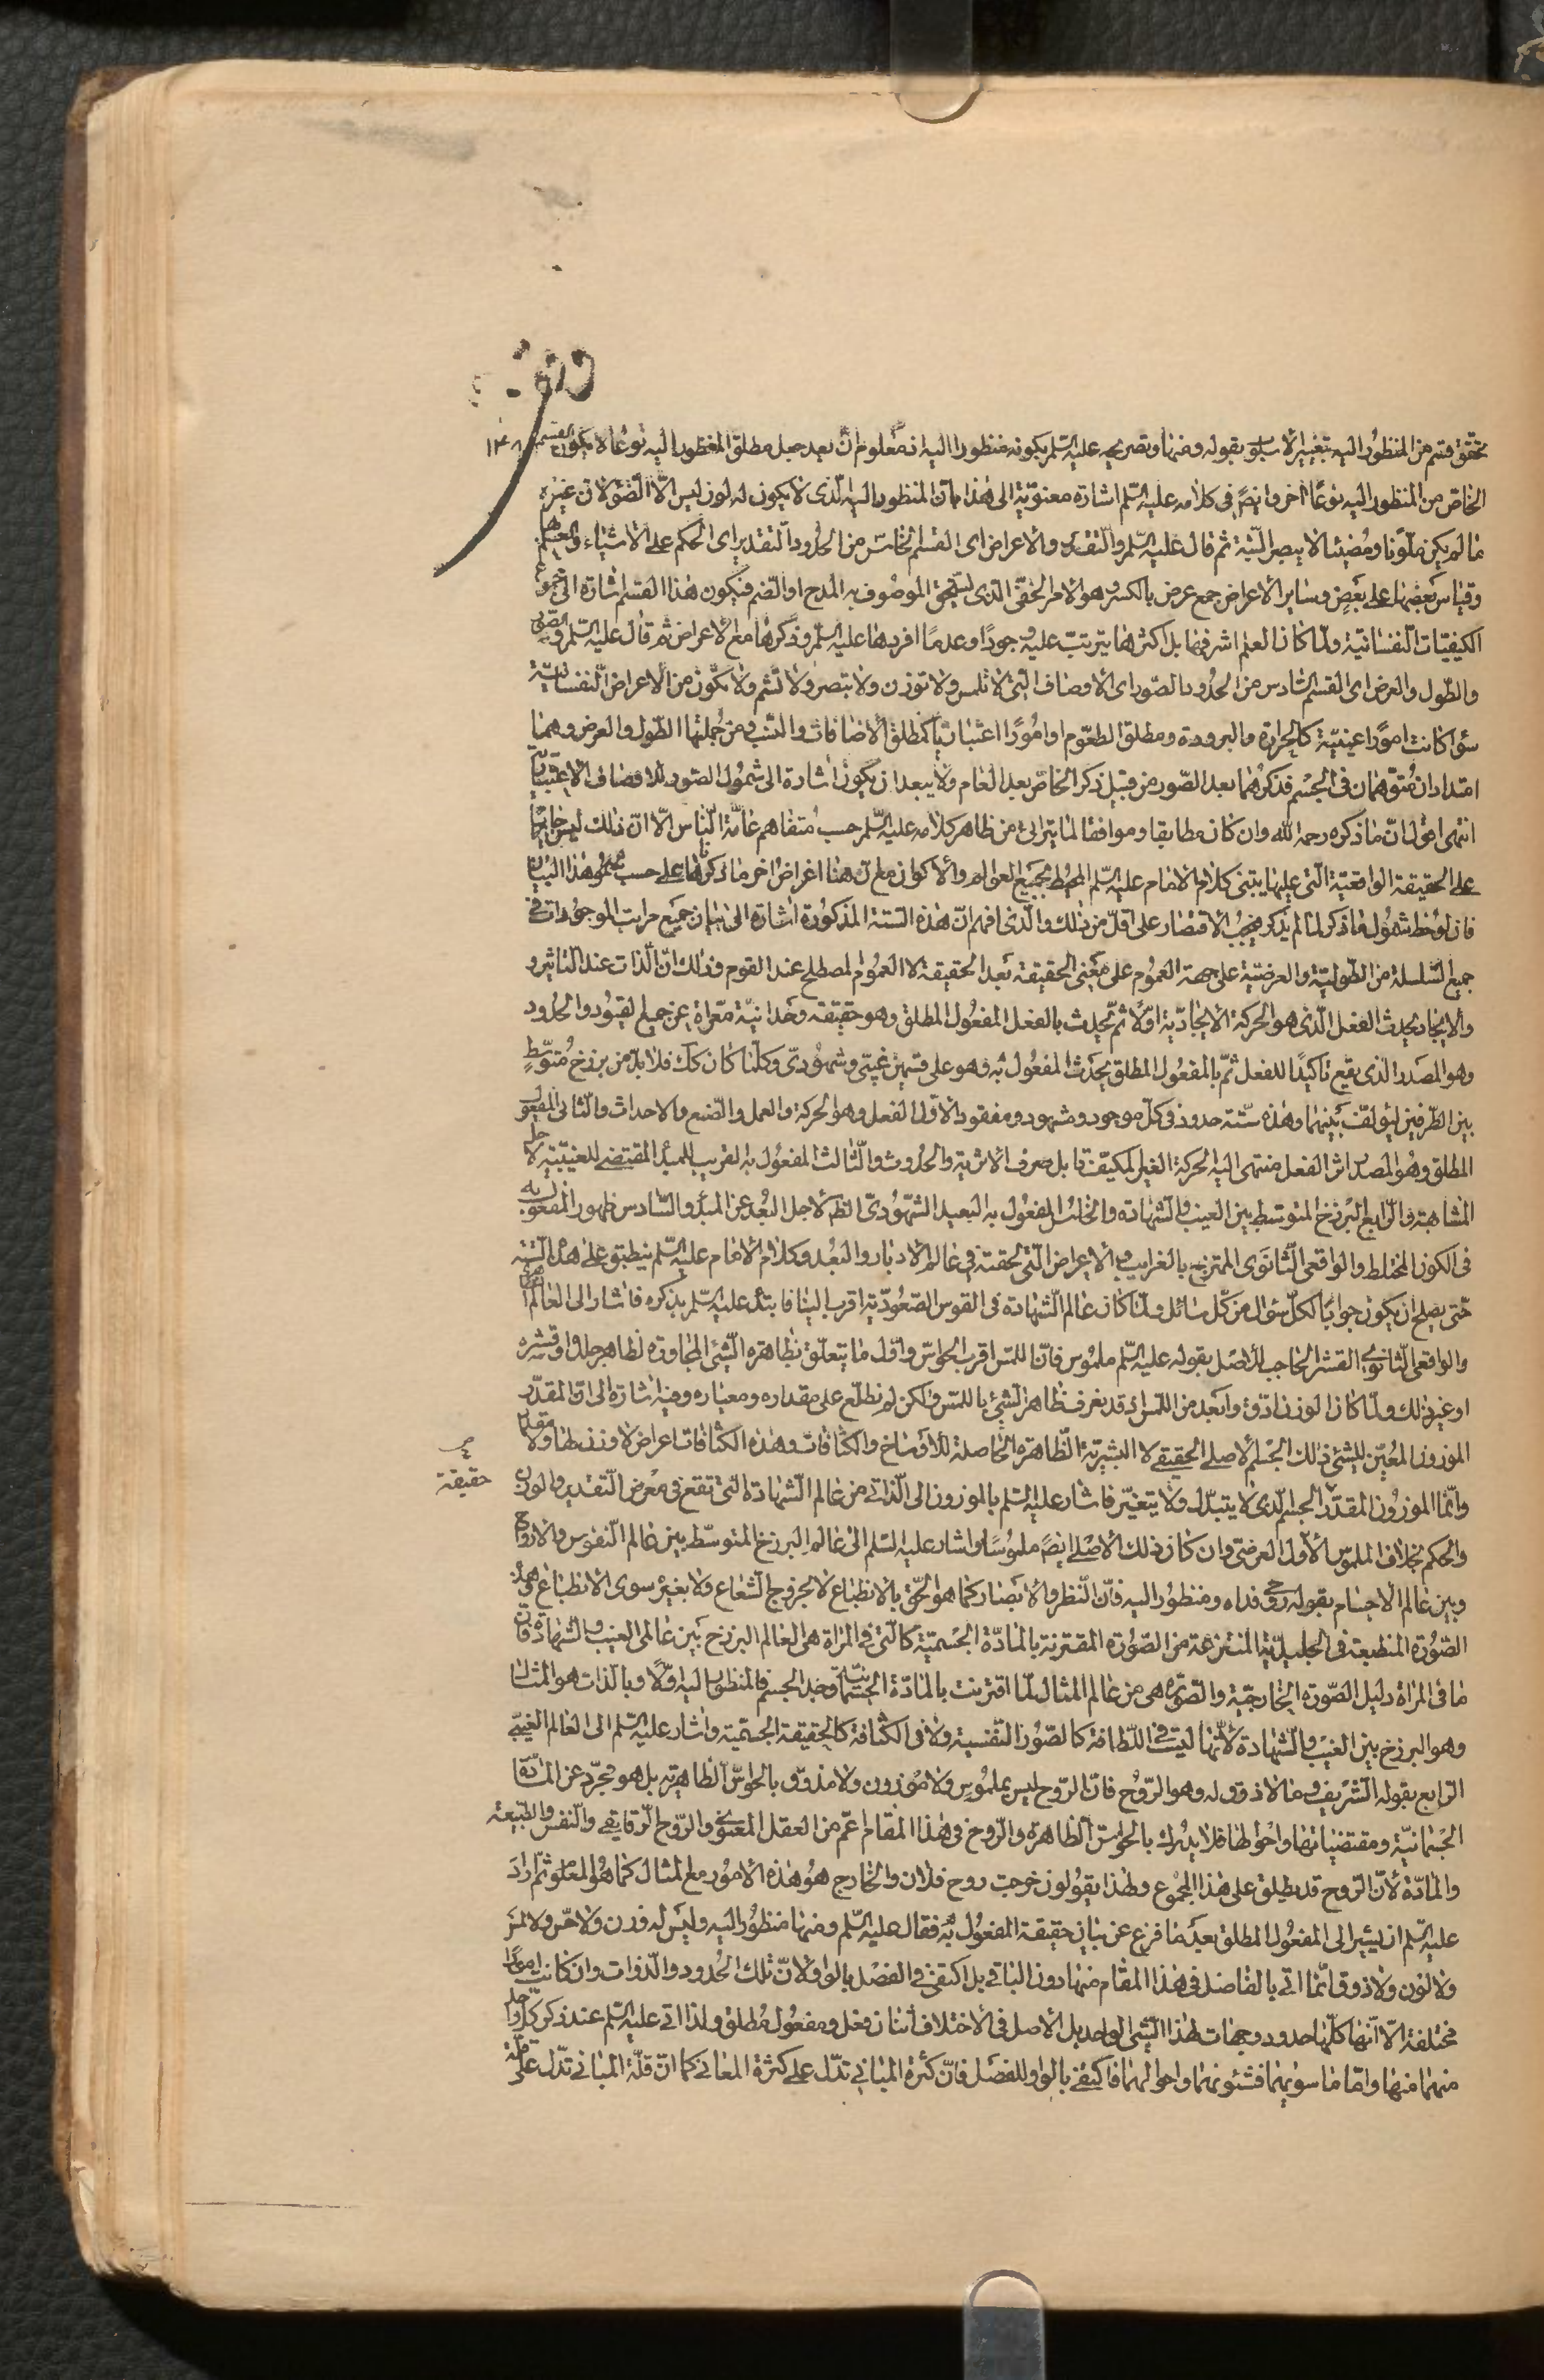 تحقق قسم من المنظور اليه بتغيير الاسلوب بقوله ومنها وتصريحه عليه السلم بكونه منظورا اليه اذ معلوم ان بعد جعل مطلق المنظور اليه نوعا لا يكون القسم
١٣٨
الخاص من المنظور اليه نوعًا اخر وايضً في كلامه عليه السلم اشارة معنوية الى هذا بان المنظور اليه الذى لا يكون له لون ليس الا الضوء لان غيره
ما لم يكن ملونا ومضيئا لا يبصر البتة ثم قال عليه السلم والتقدير والاعراض اى القسم الخامس من الحدود التقدير اى الحكم على الاشياء والعلم بها
وقياس بعضها على بعض وساير الاعراض جمع عرض بالكسر وهو الامر الخفى الذى يستحق الموصوف به المدح او الذم فيكون هذا القسم اشارة الى مجموع
الكيفيات النفسانية ولما كان العلم اشرفها بل اكثرها يترتب عليه وجودًا وعدمًا افردها عليه السلم وذكرها مع الاعراض ثم قال عليه السلم والصور
والطول والعرض اى القسم السادس من الحدود الصور اى الاوصاف التى لا تلمس ولا توزن ولا تبصر ولا تشم ولا تكون من الاعراض النفسانية
سواء كانت امورًا عينية كالحرارة والبرودة ومطلق الطعوم او امورًا اعتباريًا كمطلق الاضافات والنسب ومن جملتها الطول والعرض وهما
امتدادان متوهمان فى الجسم فذكرهما بعد الصور من قبيل ذكر الخاص بعد العام ولا يبعد ان يكون اشارة الى شمول الصور للاوصاف الاعتبارية
انتهى اقول ان ما ذكره رحمه الله وان كان مطابقا وموافقا لما يترائى من ظاهر كلامه عليه السلم حسب متفاهم عامة الناس الا ان ذلك ليس جاريا
على الحقيقة الواقعية التى عليها يبتنى كلام الامام عليه السلم المحيط بجميع العوالم والاكوان مع ان هنا اعراض اخر ما ذكرها على حسب هذا البيان
فان لوحظ شمول ما ذكر لما لم يذكر فيجب الاقتصار على اقل من ذلك والذى افهم ان هذه الستة المذكورة اشارة الى بيان جميع مراتب الموجودات فى
جميع السلسلة من الطولية والعرضية على جهة العموم على معنى الحقيقة بعد الحقيقة لا العموم المصطلح عند القوم وذلك ان الذات عند التاثير و
والايجاد يحدث الفعل الذى هو الحركة الايجادية اولا ثم تحدث بالفعل المفعول المطلق وهو حقيقته وحدانية معراة عن جميع القيود والحدود
وهو المصدر الذى يقع تاكيدًا للفعل ثم بالمفعول المطلق يحدث المفعول به وهو على قسمين غيبى وشهودى وكلما كان كك فلا بد من برزخ متوسط
بين الطرفين ليؤلف بينهما وهذه ستة حدود فى كل موجود ومشهود ومفقود الاول الفعل وهو الحركة والعمل والصنع والاحداث والثانى المفعول
المطلق وهو المصدر اثر الفعل منتهى اليه الحركة الغير المكيفة بل صرف الاثرية والحدوث والثالث المفعول به القريب للمبدء المقتضى للغيبية لاجل
المشابهة والرابع البرزخ المتوسط بين الغيب والشهادة والخامس المفعول به البعيد الشهودى الظ لاجل البعد عن المبدء والسادس ظهور المفعول به
فى الكون المختلط والواقعى الثانوى الممتزج بالغرايب والاعراض التى لحقته فى عالم الادبار والبعد وكلام الامام عليه السلم ينطبق على هذه الستة
حتى يصلح ان يكون جوابًا لكل سؤال من كل سائل ولما كان عالم الشهادة فى القوس الصعودية اقرب الينا فابتدء عليه السلم بذكره فاشار الى العالم
والواقعى الثانوى القشر الحاجب للاصل بقوله عليه السلم ملموس فان اللمس اقرب الحواس واول ما يتعلق بظاهره الشئ المجاورة لظاهر جلده او قشره
او غير ذلك ولما كان الوزن ادق وابعد من اللمس اذ قد يعرف ظاهر الشئ باللمس ولكن لم نطلع على مقداره ومعياره وفيه اشارة الى ان المقدر
الموزون المعين للشئ ذلك الجسم الاصلى الحقيقى لا البشرية الظاهرة الحاصلة للاوساخ والكثافات وهذه الكثافات اعراض لا وزن لها ولا مقدار
حقيقة
وانما الموزون المقدر الجسم الذى لا يتبدل ولا يتغير فاشار عليه السلم بالموزون الى الذاتى من عالم الشهادة التى تقع فى معرض التقدير والوزن
والحكم بخلاف الملموس الاول العرضى وان كان ذلك الاصلى ايضً ملموسًا واشار عليه السلم الى عالم البرزخ المتوسط بين عالم النفوس والارواح
وبين عالم الاجسام بقوله روحى فداه ومنظور اليه فان النظر والابصار كما هو الحق بالانطباع لا بخروج الشعاع ولا بغيره سوى الانطباع وهذه
الصورة المنطبعة فى الجليدية المنتزعة من الصورة المقترنة بالمادة الجسمية كالتى فى المراة هى العالم البرزخ بين عالمى الغيب والشهادة فان
ما فى المراة دليل الصورة الخارجية والصورة هى من عالم المثال لما اقترنت بالمادة الجسمانية وجد الجسم فالمنظور اليه اولًا وبالذات هو المثال
وهو البرزخ بين الغيب والشهادة لانها ليست فى اللطافة كالصور النفسية ولا فى الكثافة كالحقيقة الجسمية واشار عليه السلم الى العالم الغيبى
الرابع بقوله الشريف وما لا ذوق له وهو الروح فان الروح ليس بملموس ولا موزون ولا مذوق بالحواس الظاهرية بل هو مجرد عن المادة
الجسمانية ومقتضياتها واحوالها فلا يدرك بالحواس الظاهرة والروح فى هذا المقام اعم من العقل المعنوى والروح الرقايقى والنفس والطبيعة
والمادة لان الروح قد يطلق على هذا المجموع ولهذا يقولون خرجت روح فلان والخارج هو هذه الامور مع المثال كما هو المعلوم ثم اراد
عليه السلم ان يشير الى المفعول المطلق بعد ما فرغ عن بيان حقيقة المفعول به فقال عليه السلم ومنها منظور اليه وليس له وزن ولا حس ولا لمس
ولا لون ولا ذوق انما اتى بالفاصل فى هذا المقام منها دون الباقى بل اكتفى فى الفصل بالواو لان تلك الحدود والذوات وان كانت امورًا
مختلفة الا انها كلها حدود وجهات لهذا الشئ الواحد بل الاصل فى الاختلاف اثنان فعل ومفعول مطلق ولذا اتى عليه السلم عند ذكر كل واحد
منهما منها واما ما سويهما فشئونهما واحوالهما فاكتفى بالواو للفصل فان كثرة المبانى تدل على كثرة المعانى كما ان قلة المبانى تدل على قلة